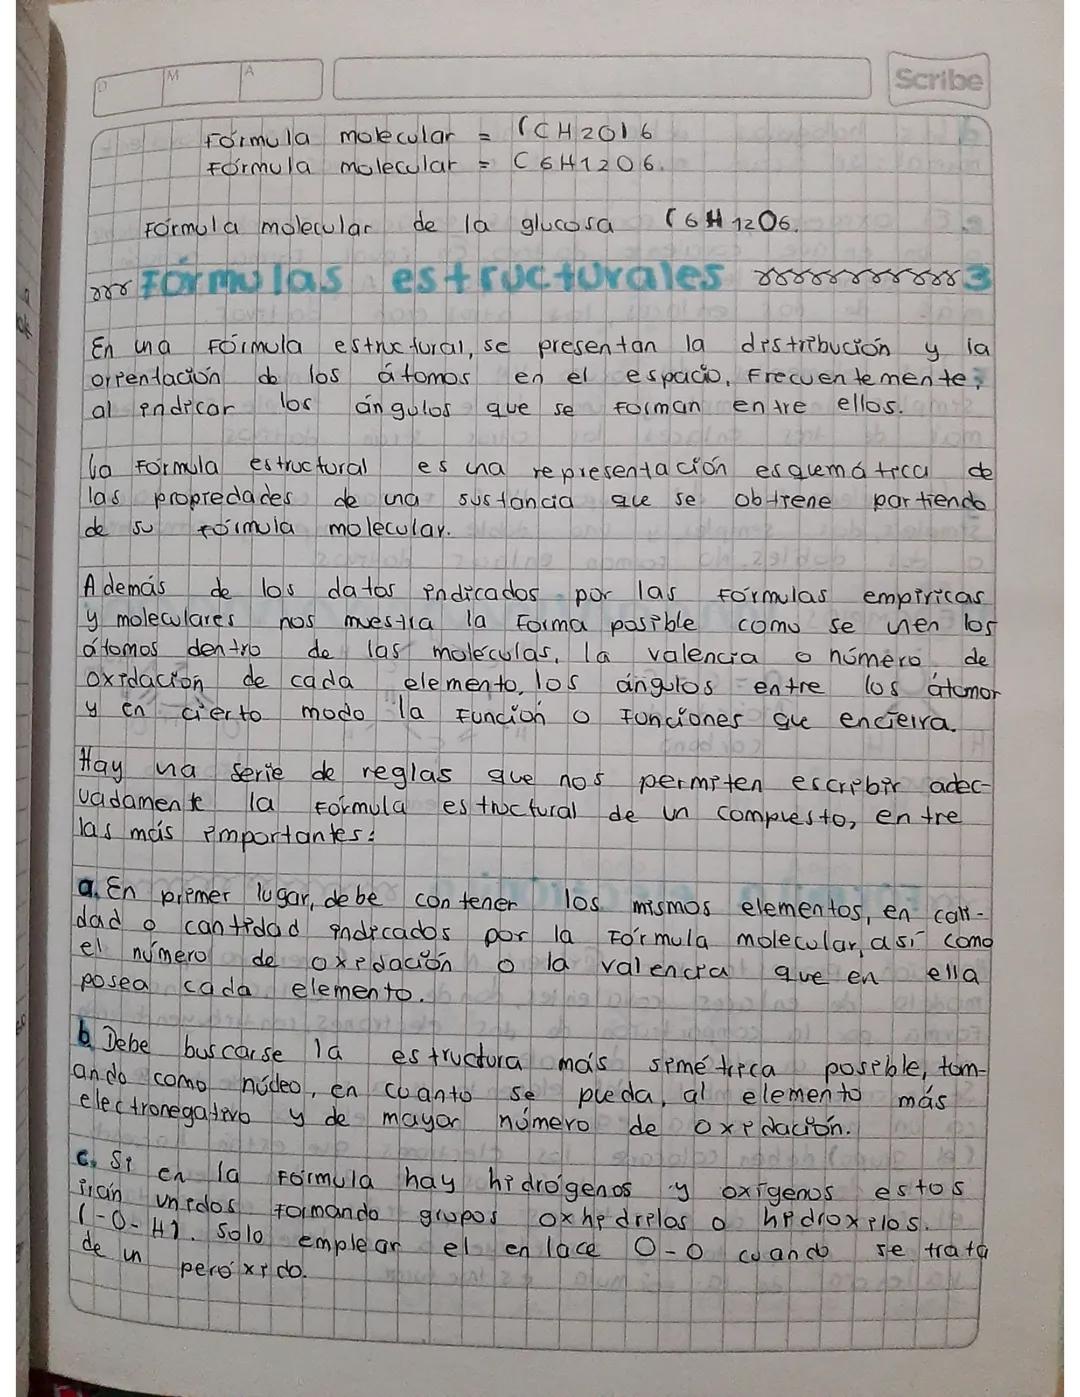 D M A Scribe
Fórmula molecular = (CH2O)6
Fórmula molecular = C6H12O6.
Fórmula molecular de la glucosa C6H12O6.
Fórmulas estructurales 3
En una Fórmula estructural, se presentan la distribución y la
orientación de los átomos en el espacio, Frecuentemente,
al indicar los ángulos que se Forman entre ellos.
La Fórmula estructural es una representación esquemática de
las propiedades de una sustancia que se obtiene partiendo
de su fórmula molecular.
Además de los datos indicados por las Fórmulas empíricas
y moleculares nos muestra la Forma posible como se unen los
átomos dentro de las moléculas, la valencia o número de
oxidación de cada elemento, los ángulos entre los átomor
y en cierto modo la Función o Funciones que encierra.
Hay una serie de reglas que nos permiten escribir adec-
uadamente la Fórmula estructural de un compuesto, entre
las más importantes:
a. En primer lugar, debe contener los mismos elementos, en cali-
dad o cantidad indicados por la Fórmula molecular, así como
el número de oxidación o la valencia que en ella
posea cada elemento.
b. Debe buscarse la estructura más simétrica posible, tom-
ando como núcleo, en cuanto se pueda, al elemento más
electronegativo y de mayor número de oxidación.
c. Si en la Fórmula hay hidrógenos y oxígenos estos
irán unidos Formando grupos oxhidrilos o hidroxilos.
(-O-H). Solo emplear el enlace O-O cuando se trata
de un peróxido.